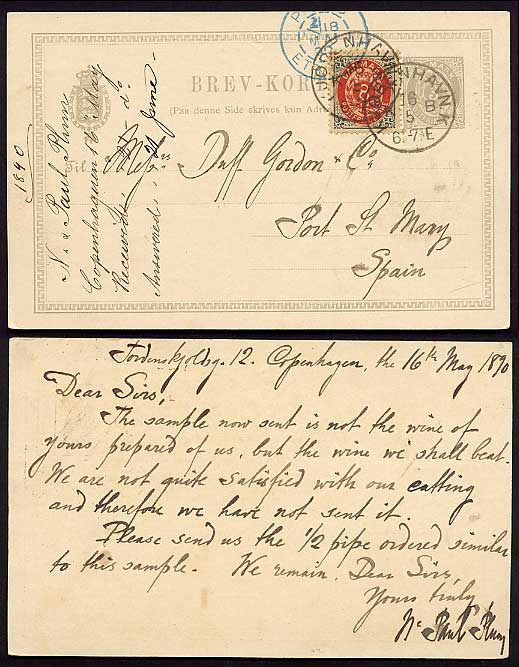 BREV-KOR
(Paa denne Side skrives kun Adr
Til
Messrs
Duff Gordon & Co,
Port St Mary
Spain
1890
N. C. Paul Plum
Copenhaguen 16 May
Received, 21 do
Answered,
June
KJØBENHAVN K.
16 5
6-7 E
DANMARK
8
Tordenskjoldsg. 12. Copenhagen, the 16th May 1890
Dear Sirs,
The sample now sent is not the wine of
yours prepared of us, but the wine we shall beat.
We are not quite satisfied with our cutting
and therefore we have not sent it.
Please send us the 1/2 pipe ordered similar
to this sample. We remain, Dear Sirs,
Yours truly
Nc Paul Plum